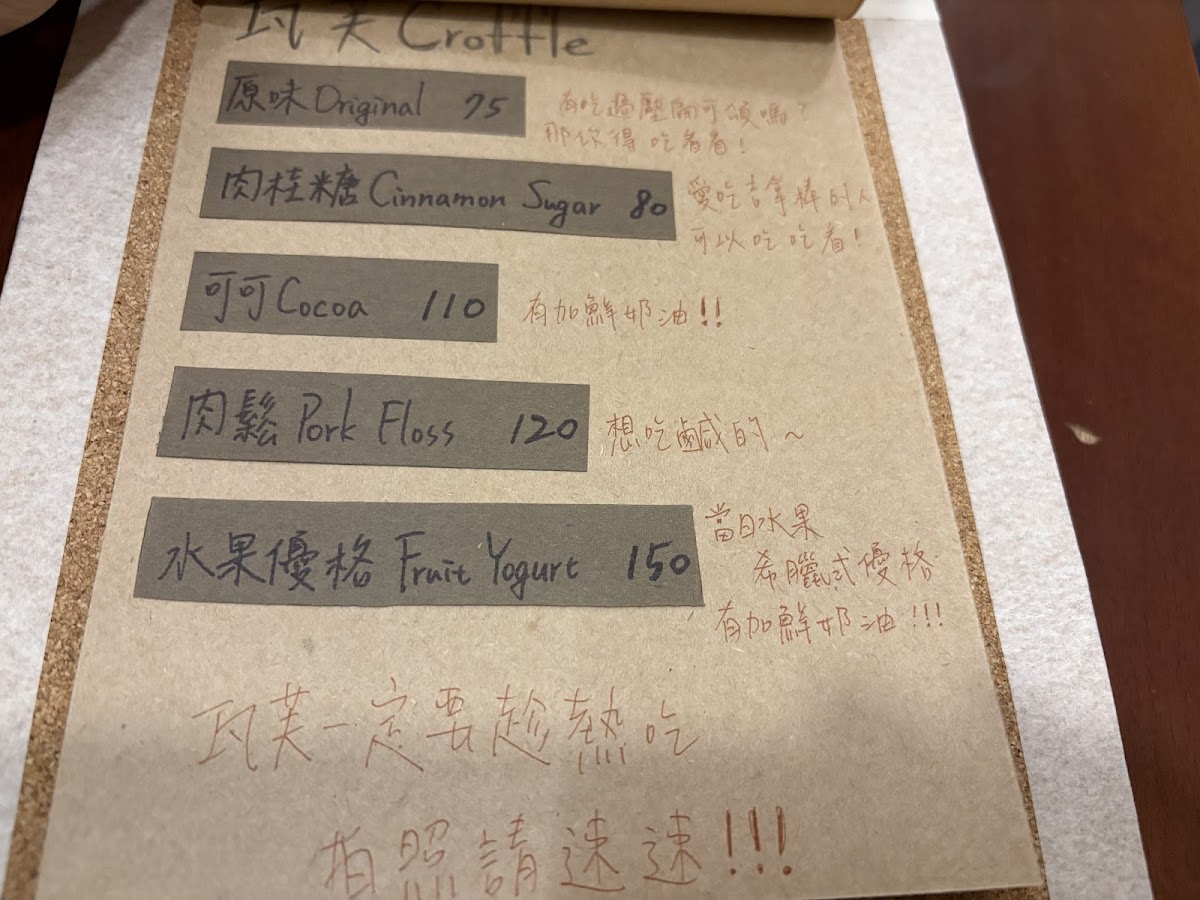 瓦芙 Croffle
原味 Original 75
有吃過壓開可頌嗎?
那你得吃看看!
肉桂糖 Cinnamon Sugar 80
愛吃吉拿棒的人
可以吃吃看!
可可 Cocoa 110
有加鮮奶油!!
肉鬆 Pork Floss 120
想吃鹹的~
水果優格 Fruit Yogurt 150
當日水果
希臘式優格
有加鮮奶油!!!
瓦芙一定要趁熱吃
拍照請速速!!!